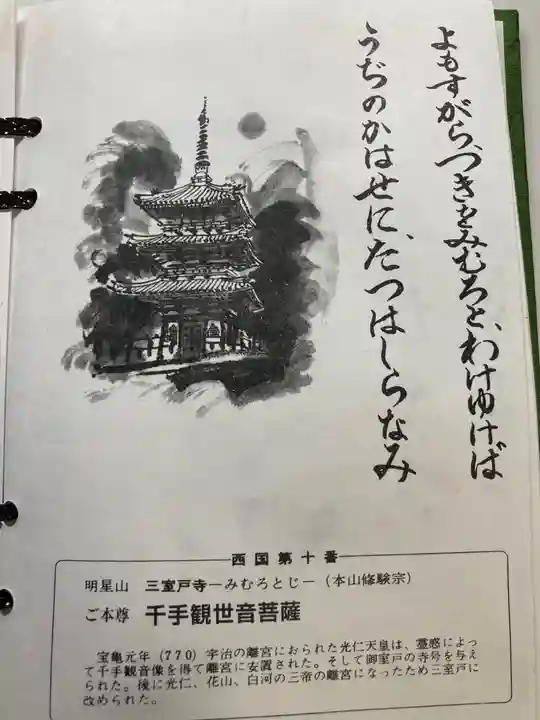 よもすがら、つきをみむろと、わけゆけば
うぢのかはせに、たつはしらなみ
西国第十番
明星山 三室戸寺－みむろとじ－（本山修験宗）
ご本尊 千手観世音菩薩
宝亀元年（770）宇治の離宮におられた光仁天皇は、霊感によっ
て千手観音像を得て離宮に安置された。そして御室戸の寺号を与え
られた。後に光仁、花山、白河の三帝の離宮になったため三室戸に
改められた。